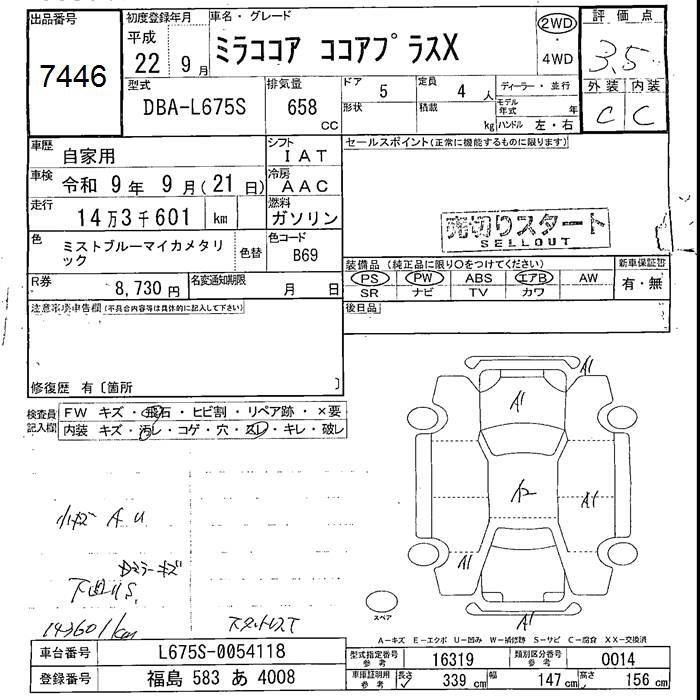 出品番号 初度登録年月 車名・グレード 2WD 評価点
7446 平成 22 9月 ミラココア ココアプラスX 4WD 3.5
型式 排気量 ドア 5 定員 4人 ディーラー・並行 外装 内装
DBA-L675S 658 CC 形状 積載 kg モデル年式 年 ハンドル 左・右 C C
車歴 自家用 シフト IAT セールスポイント(正常に機能するものに限ります)
車検 令和 9年 9月(21日) 冷房 AAC
走行 14万3千601 km 燃料 ガソリン 売切りスタート
SELLOUT
色 ミストブルーマイカメタリック 色替 色コード B69
装備品(純正品に限り〇をつけてください) 新車保証書
PS PW ABS エアB AW 有・無
SR ナビ TV カワ
R券 8,730円 名変通知期限 月 日
後日品
注意事項申告欄(不具合内容等は具体的に記入して下さい)
修復歴 有〔箇所 〕
検査員記入欄 FW キズ・飛石・ヒビ割・リペア跡・×要
内装 キズ・汚レ・コゲ・穴・スレ・キレ・破レ
A1
A1
小キズ A U
A2
A1
A1
下回りS
143601km
スペア
A1
A-キズ E-エクボ U-凹み W-補修跡 S-サビ C-腐食 XX-交換済
車台番号 L675S-0054118 型式指定番号 参考 16319 類別区分番号 参考 0014
登録番号 福島 583 あ 4008 車庫証明用 参考 長さ 339 cm 幅 147 cm 高さ 156 cm